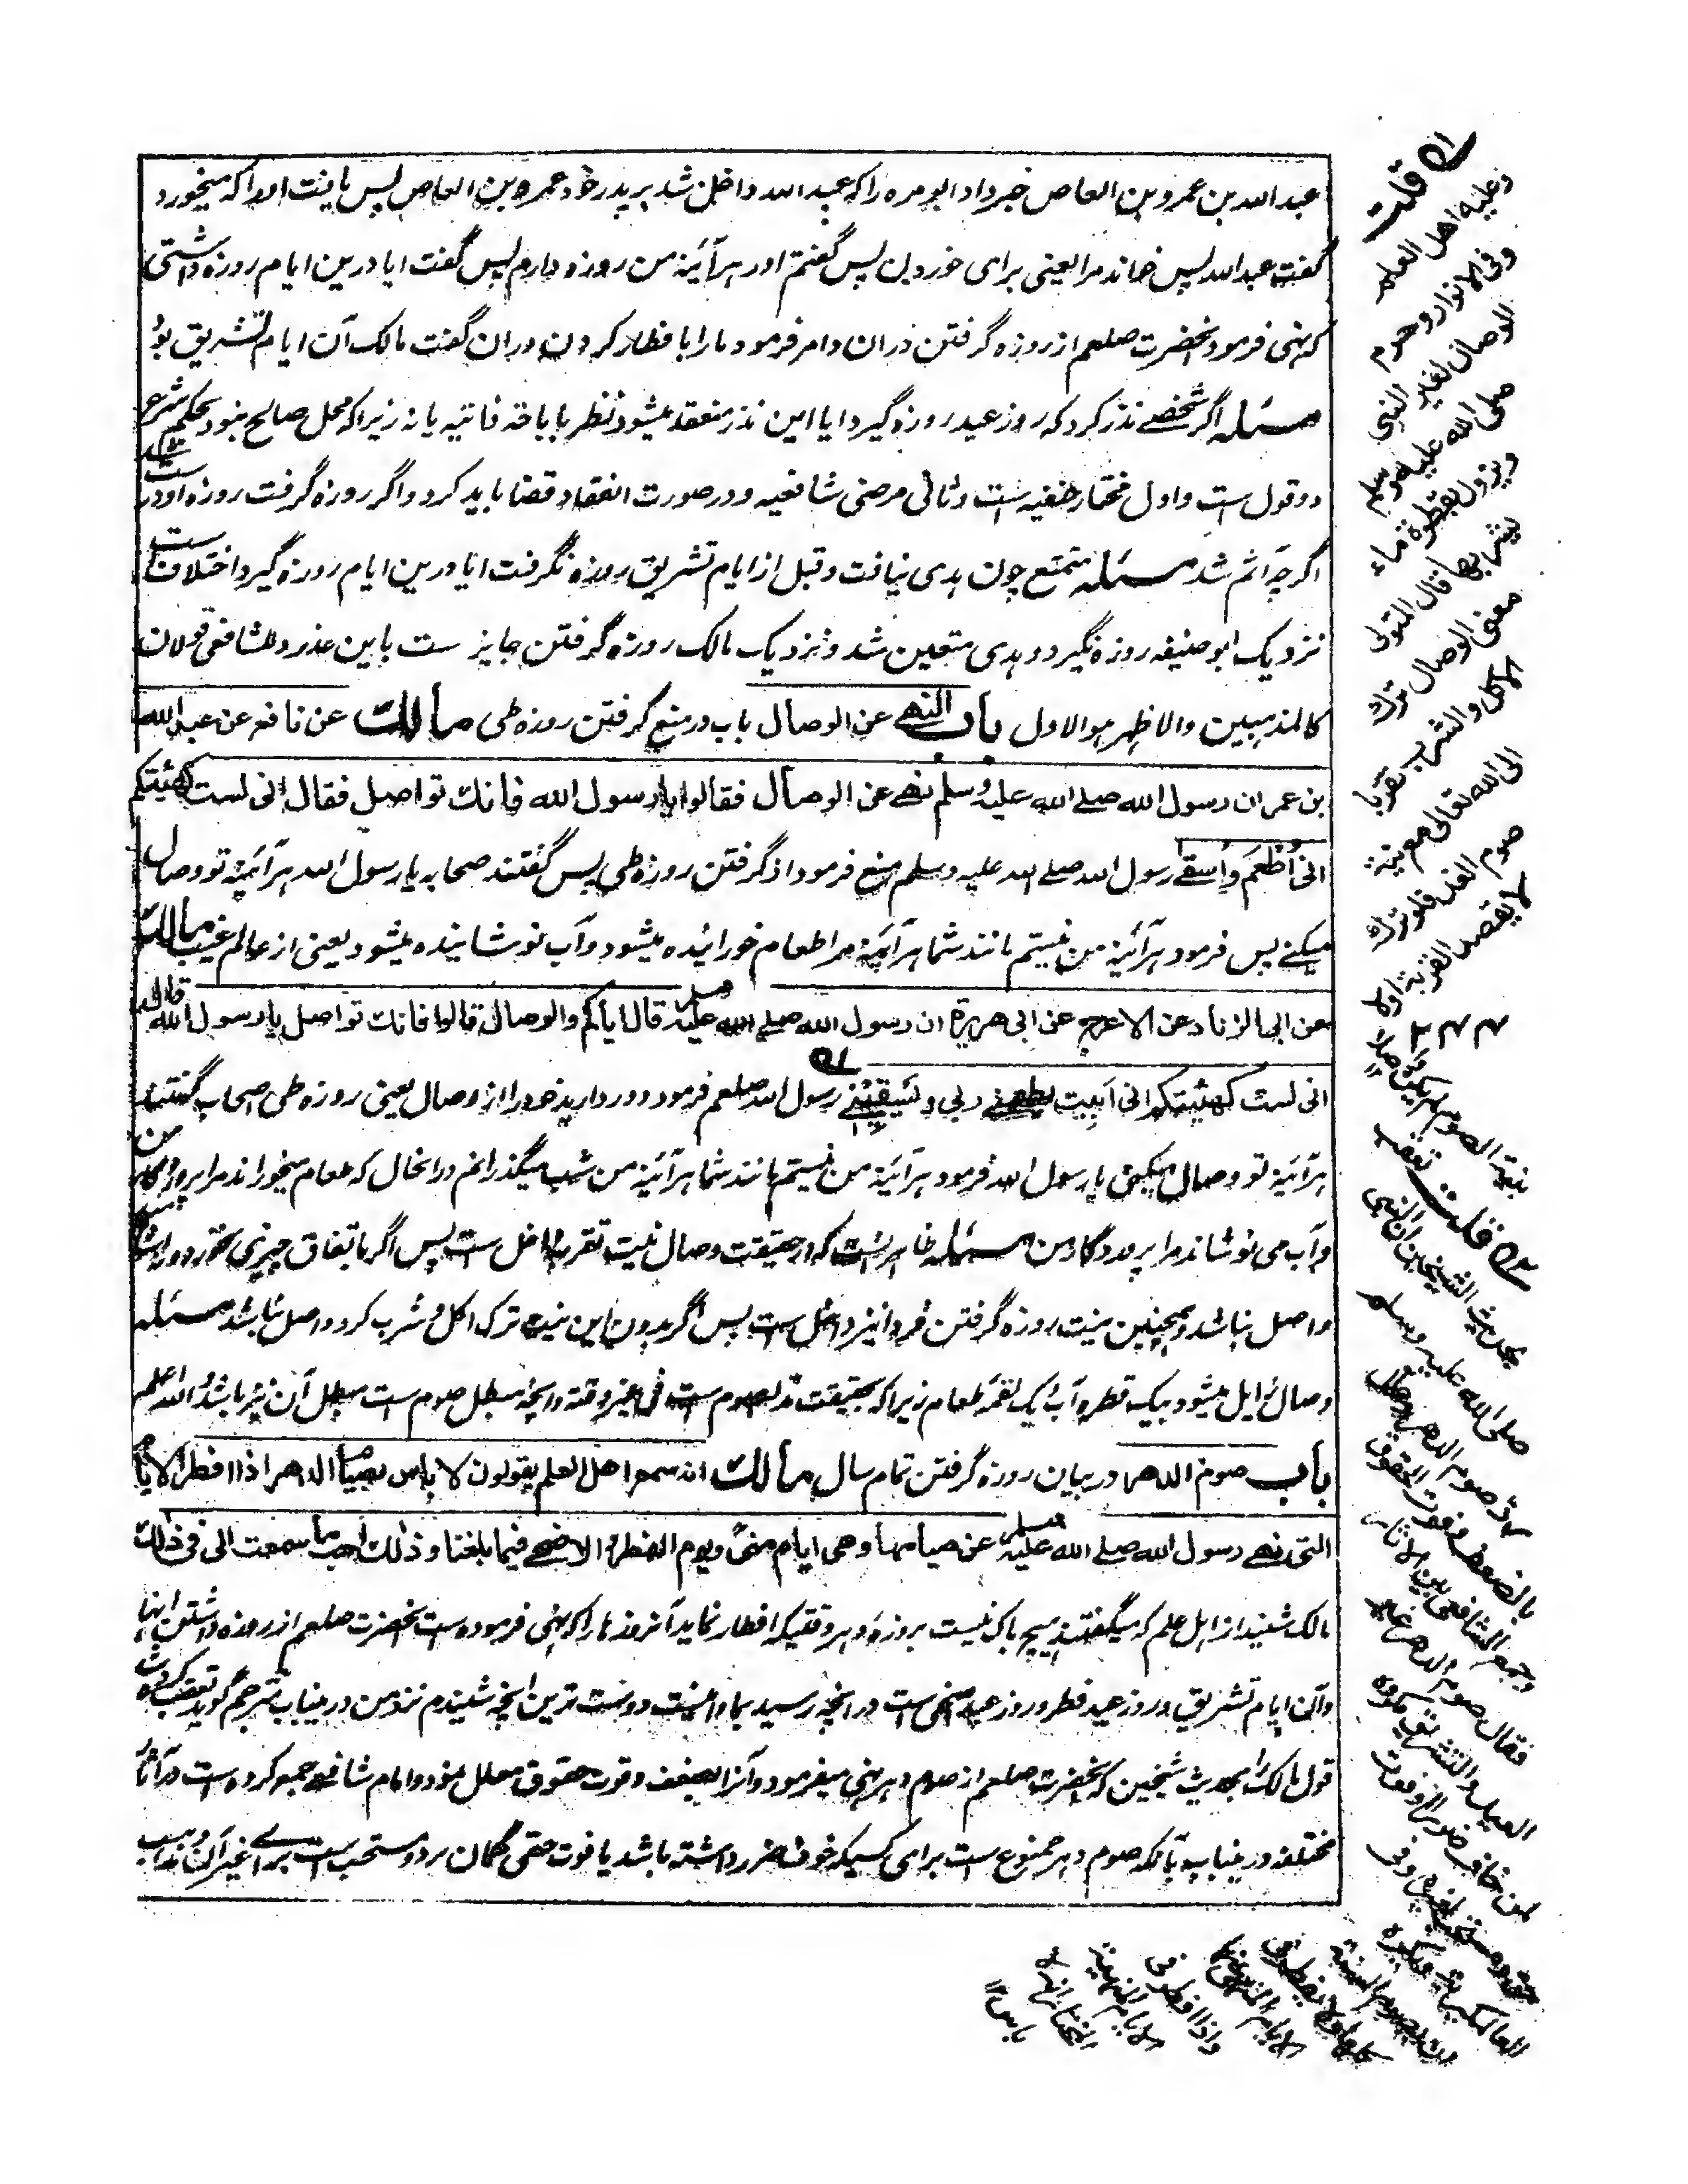 عبد الله بن عمرو بن العاص خبر داد ابو مره را که عبد الله داخل شد بر پدر خود عمرو بن العاص پس یافت او را که میخورد
گفت عبد الله پس خواند مرا یعنی برای خوردن پس گفتم او را هر آئینه من روزه دارم پس گفت ایا درین ایام روزه داشتی
که نهی فرمود آنحضرت صلعم از روزه گرفتن دران و امر فرمود ما را بافطار کردن دران گفت مالک آن ایام تشریق بود
مسئله اگر شخصے نذر کرد که روز عید روزه گیرد ایا این نذر منعقد میشود نظر باباحة فانیه یا نه زیرا که محل صالح نبود بحکم شرع
دو قول است و اول مختار حنفیه است و ثانی مرضی شافعیه و در صورت انعقاد قضا باید کرد و اگر روزه گرفت روزه او درست
اگرچه آثم شد مسئله متمتع چون هدی نیافت و قبل از ایام تشریق روزه نگرفت ایا درین ایام روزه گیرد اختلاف است
نزدیک ابو حنیفه روزه نگیرد و هدی متعین شد و نزدیک مالک روزه گرفتن جایز ست باین عذر و للشافعی قولان
کالمذهبین والاظهر هو الاول باب النهے عن الوصال باب در منع گرفتن روزه طی مالك عن نافع عن عبد الله
بن عمر ان رسول الله صلے الله علیه وسلم نهے عن الوصال فقالوا یا رسول الله فانك تواصل فقال انی لست کهیئتکم
انی اُطعَم و اُسقے رسول الله صلے الله علیه وسلم منع فرمود از گرفتن روزه طی پس گفتند صحابه یا رسول الله هر آئینه تو وصال
میکنے پس فرمود هر آئینه من نیستم مانند شما هر آئینه مرا طعام خورانیده میشود و آب نوشانیده میشود یعنی از عالم غیب مالك
عن ابی الزناد عن الاعرج عن ابی هریرة ان رسول الله صلے الله علیه وسلم قال ایاکم والوصال قالوا فانك تواصل یا رسول الله قال
انی لست کهیئتکم انی اَبیت یطعمنے ربی و یَسقینے رسول الله صلعم فرمود دور دارید خود را از وصال یعنی روزه طی اصحاب گفتند
هر آئینه تو وصال میکنی یا رسول الله فرمود هر آئینه من نیستم مانند شما هر آئینه من شب میگذرانم درانحال که طعام میخوراند مرا پروردگار من
و آب می نوشاند مرا پروردگار من مسئله ظاهر انست که در حقیقت وصال نیت تقرب داخل ست پس اگر باتفاق چیزی نخورد
واصل نباشد و همچنین نیت روزه گرفتن فردا نیز داخل ست پس اگر بدون این نیت ترک اکل و شرب کرد واصل نباشد مسئله
وصال زایل میشود بیک قطره آب یک لقمه طعام زیرا که بحقیقت صوم است فی غیر وقته و آنچه مبطل صوم است مبطل آن نیز باشد والله اعلم
باب صوم الدهر در بیان روزه گرفتن تمام سال مالك انه سمع اهل العلم یقولون لا باس بصیام الدهر اذا افطر الایام
التی نهے رسول الله صلے الله علیه وسلم عن صیامها وهی ایام منی ویوم الفطر والاضحے فیما بلغنا وذلك احب ما سمعت الی فی ذلك
مالک شنید از اهل علم که میگفتند هیچ باک نیست بروزه دهر وقتیکه افطار نماید آنروزها را که نهی فرموده است آنحضرت صلعم از روزه داشتن اینها
و آن ایام تشریق و روز عید فطر و روز عید اضحی است در انچه رسید بما و اینست دوست ترین انچه شنیدم نزد من درینباب مترجم گوید تعقب کرده
قول مالک را بحدیث شیخین که آنحضرت صلعم از صوم دهر نهی میفرمود و آنرا بضعف و فوت حقوق معلل نمود و امام شافعی جمع کرده است در آثار
مختلفه درینباب بآنکه صوم دهر ممنوع ست برای کسیکه خوف ضرر داشته باشد یا فوت حقی گمان برد و مستحب است برای غیر آن
قلت
وعلیه اهل العلم
وفی الانوار وحرم
الوصال لغیر النبی
صلی الله علیه وسلم
ویزول بقطرة ماء
یشربها قال المتولی
معنی الوصال ترك
الاکل والشرب تقربا
الی الله تعالی مع نیة
صوم الغد فلو ترك
لا بقصد القربة او لا
بنیة الصوم لم یکن واصلا
قلت تعقب
بحدیث الشیخین ان النبی
صلی الله علیه وسلم
بالضعف وفوت الحقوق
وجمع الشافعی بین الآثار
فقال صوم الدهر غیر
العید والتشریق مکروه
لمن خاف ضررا او فوت
حق ومستحب لغیره وفی
العالمگیریة ویکره